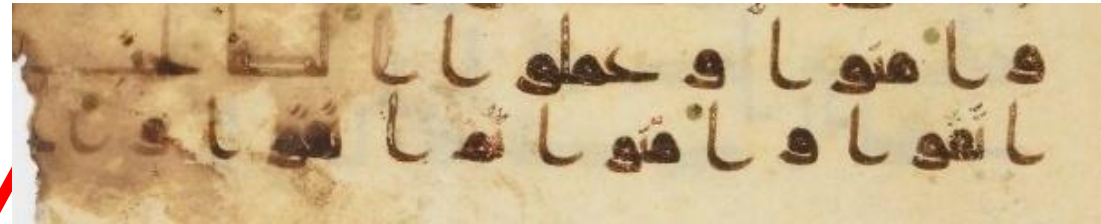 وامنوا وعملوا الصلحت
اتّقوا وامنوا ثمّ اتّقوا وا